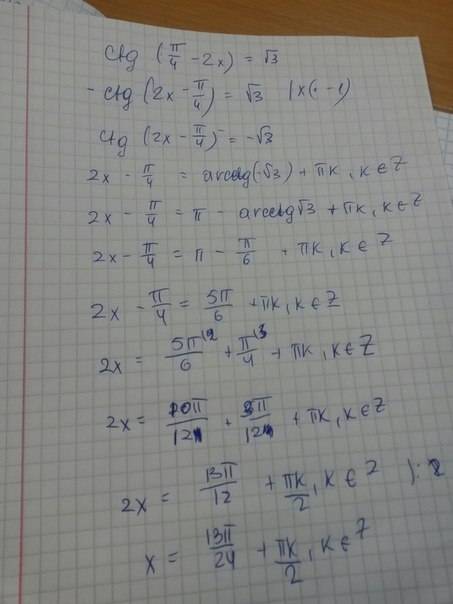 ctg (π/4 - 2x) = √3
- ctg (2x - π/4) = √3 | x(· - 1)
ctg (2x - π/4) = -√3
2x - π/4 = arcctg(-√3) + πk, k ∈ Z
2x - π/4 = π - arcctg√3 + πk, k ∈ Z
2x - π/4 = π - π/6 + πk, k ∈ Z
2x - π/4 = 5π/6 + πk, k ∈ Z
2x = 5π/6 + π/4 + πk, k ∈ Z
2x = 10π/12 + 3π/12 + πk, k ∈ Z
2x = 13π/12 + πk/2, k ∈ Z ): 2
x = 13π/24 + πk/2, k ∈ Z